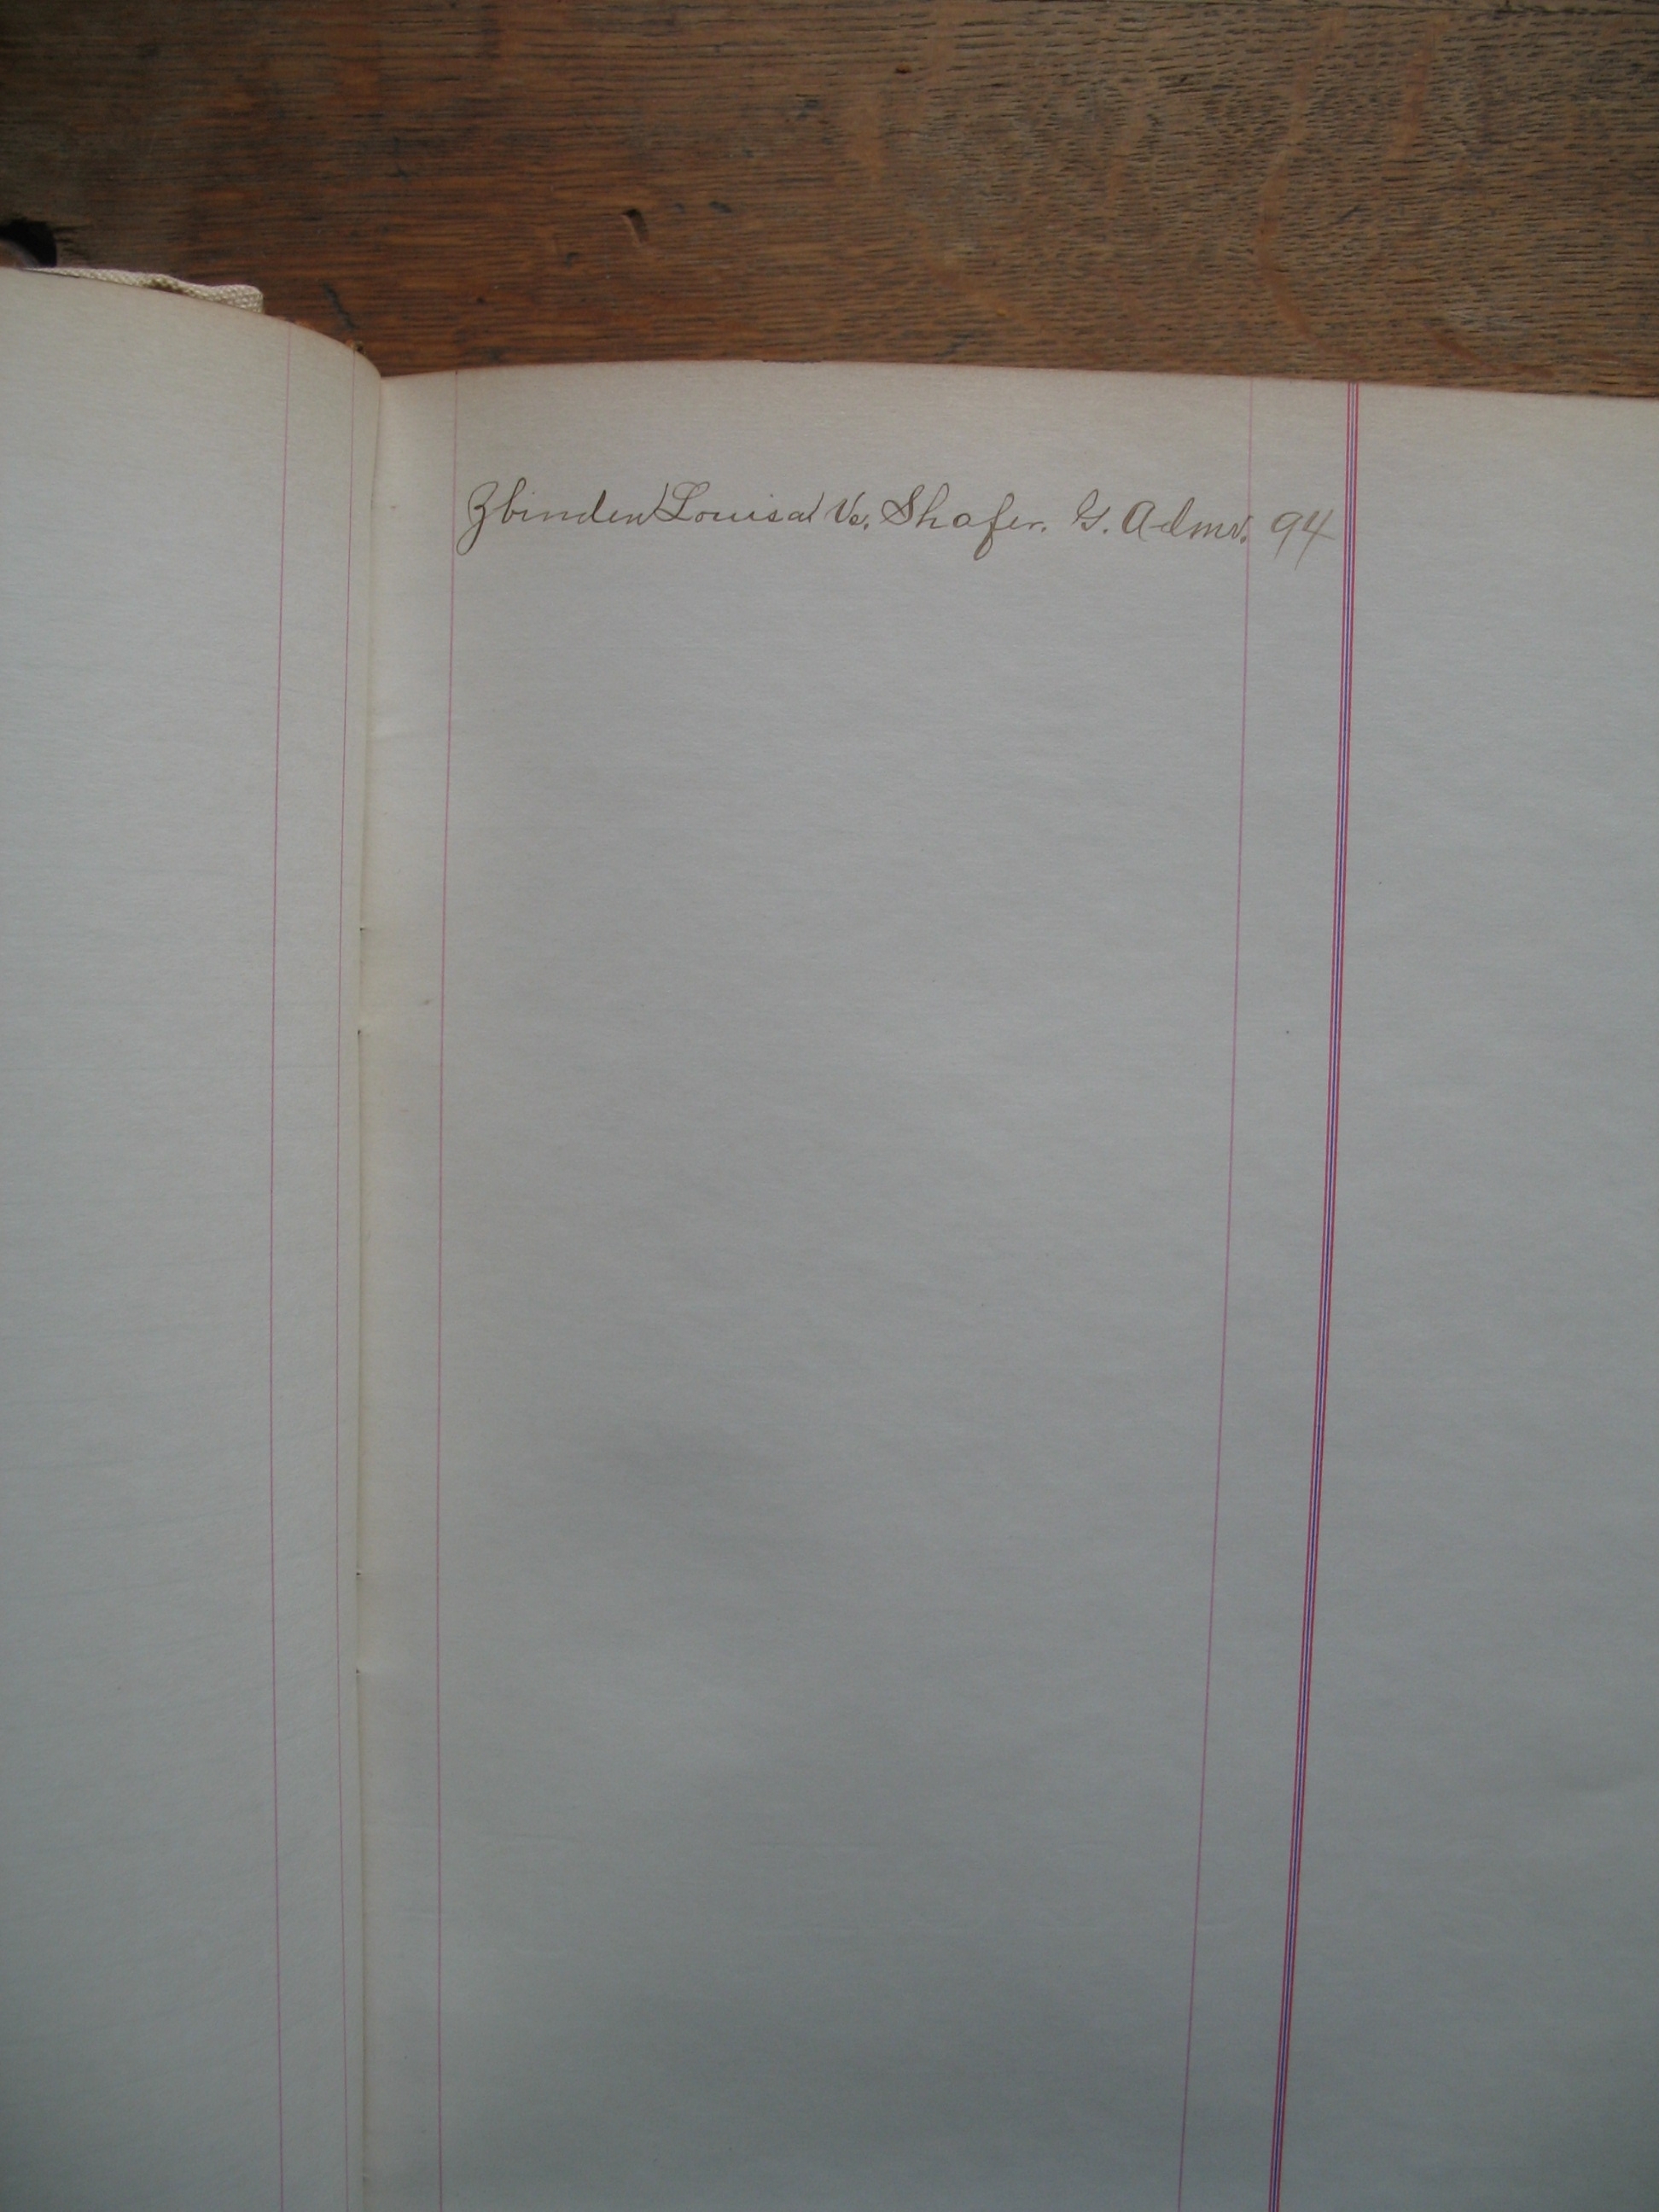 Zbinden Louisa Vs. Shafer. G. Admr. 94